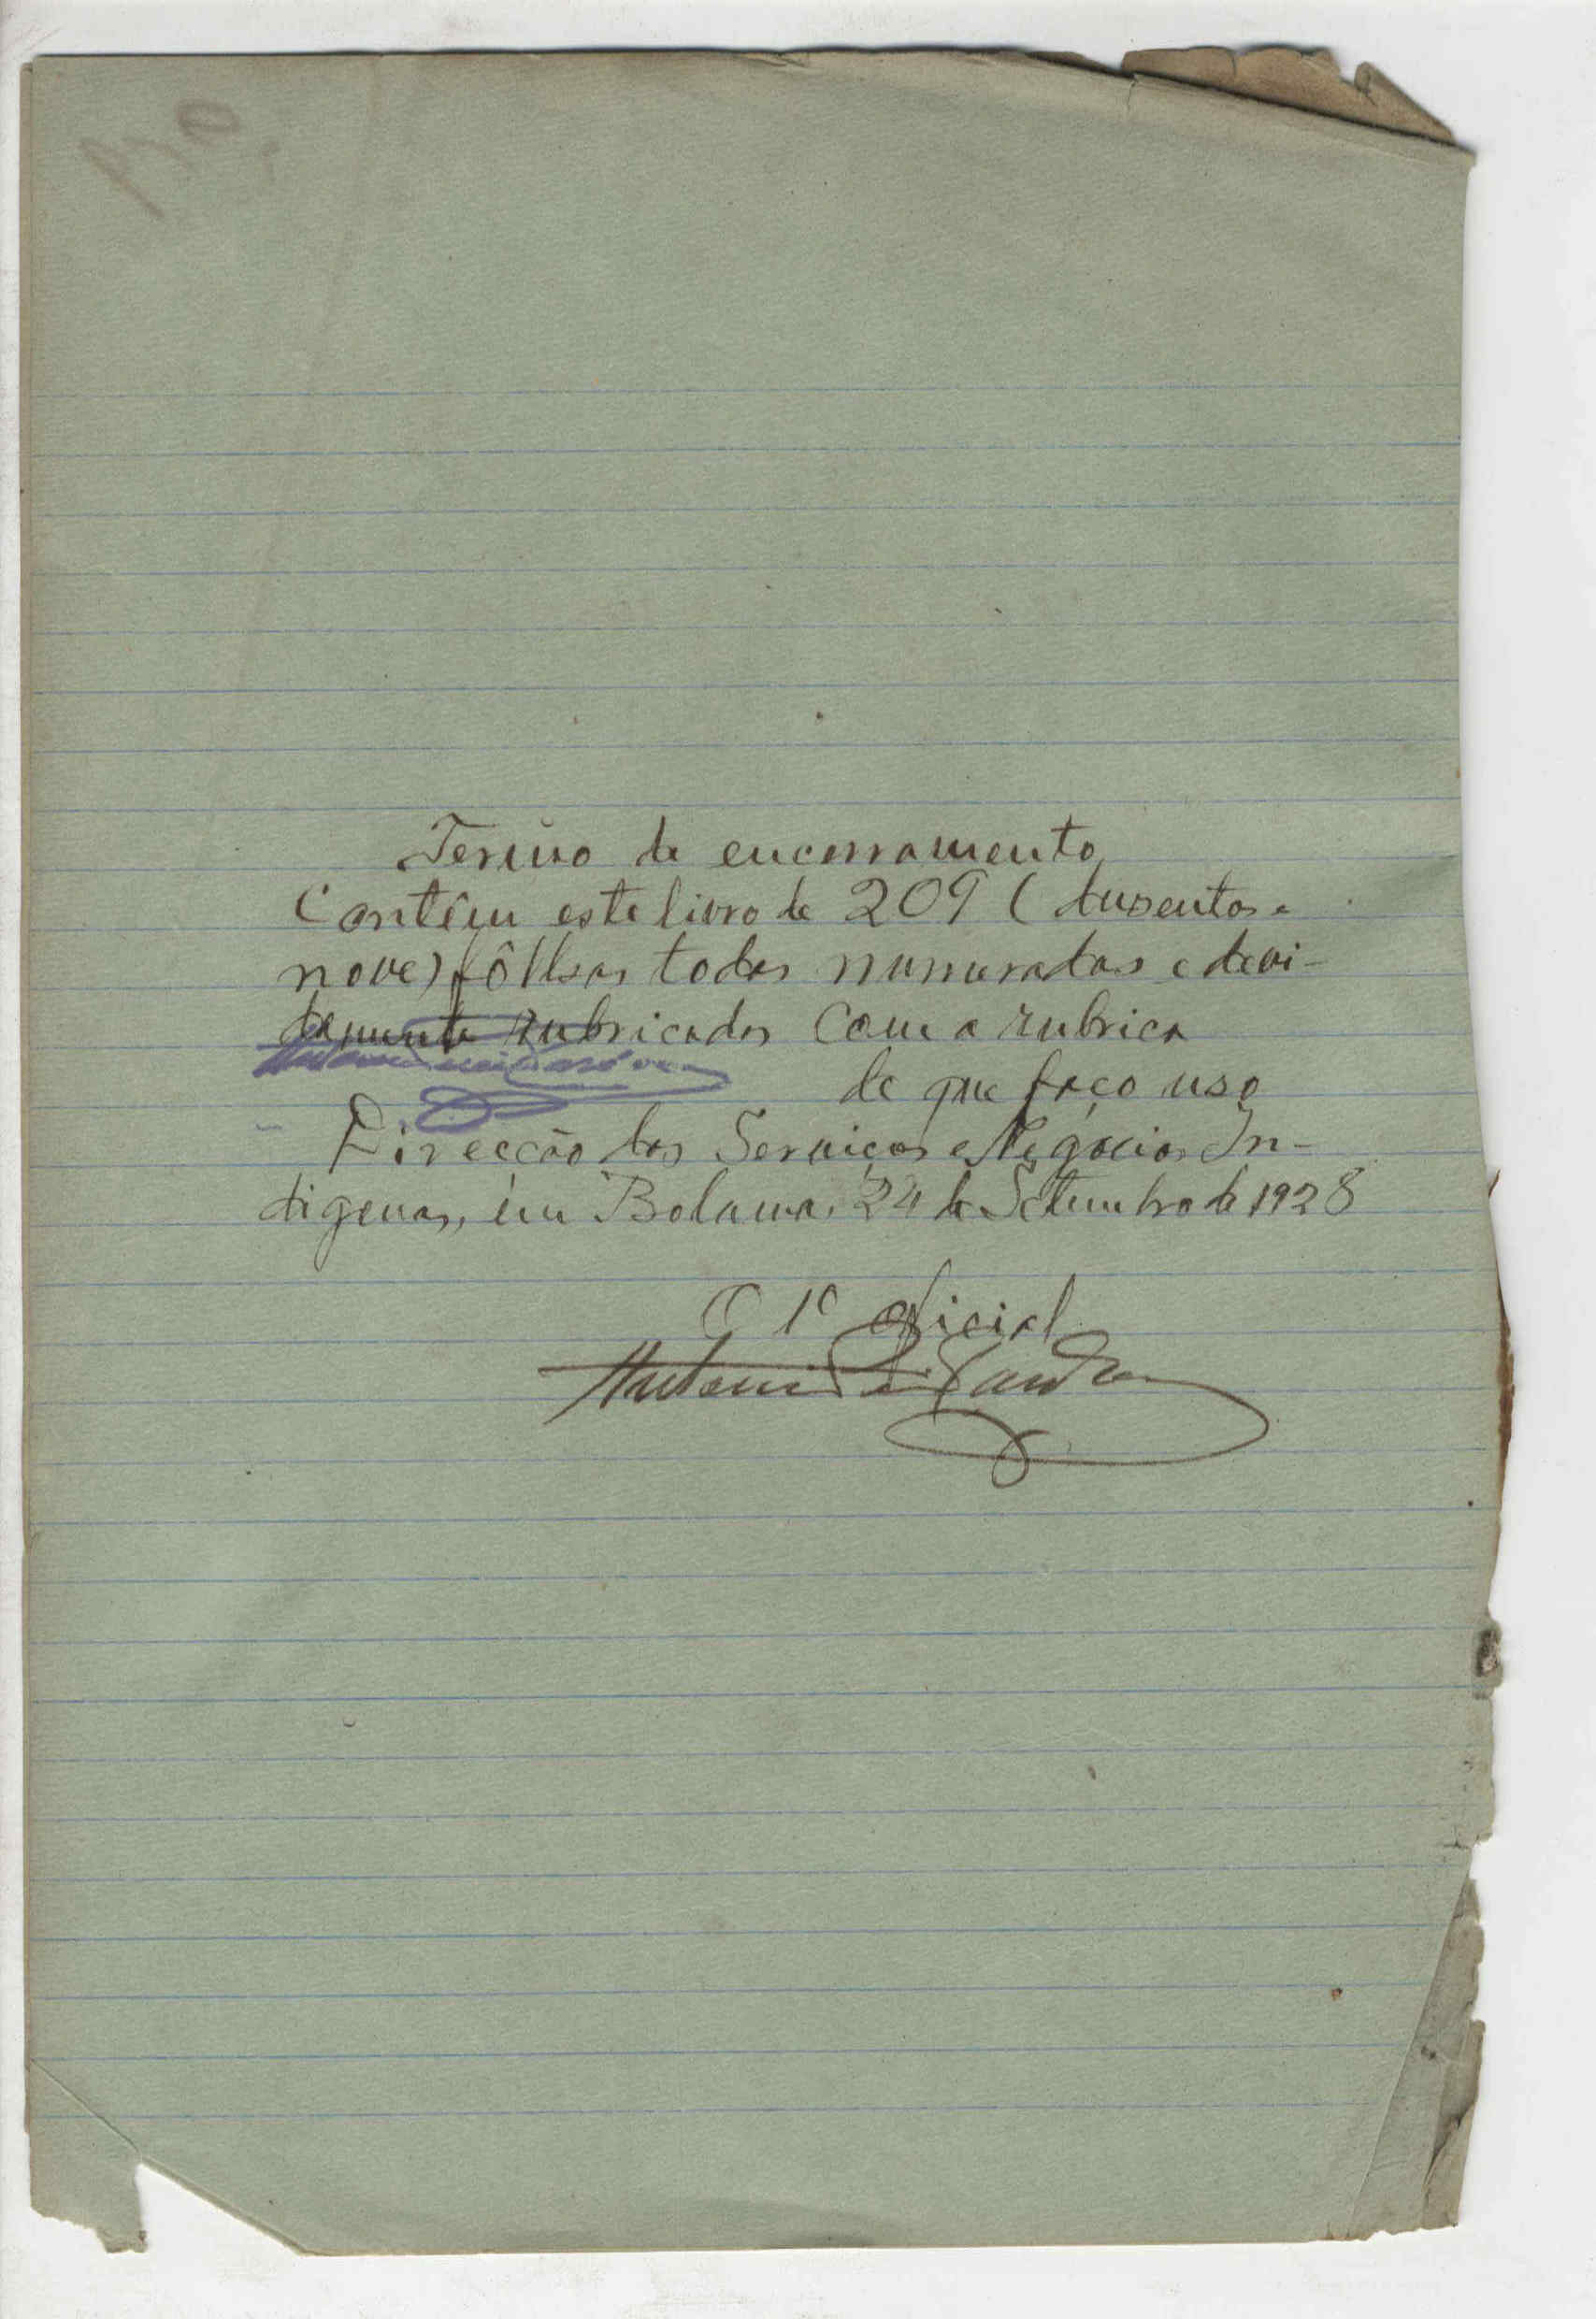 Termo de encerramento
Contêm este livro de 209 (dusentas e
nove) fôlhas todas numeradas e devi-
damente rubricadas com a rubrica
de que faço uso
Direcção dos Serviços e Negócios In-
digenas, em Bolama, 24 de Setembro de 1928
O 1º oficial
Antonio